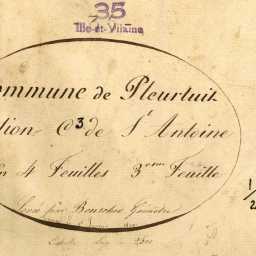 35
Ille-et-Vilaine
ommune de Pleurtuit
tion C 3 de St Antoine
n 4 Feuilles 3eme Feuille
Levé par Géomètre
1/2